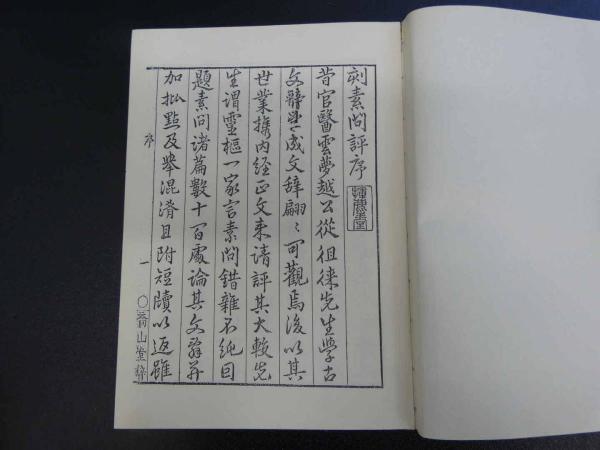 刻素問評序
昔官醫雲夢越公從徂徠先生學古
文辭學成文辞翩〻可觀焉後以其
世業攜内経正文来請評其大較先
生謂靈樞一家言素問錯雜不純因
題素問諸篇數十百處論其文辭并
加批點及舉混淆且附短牘以返雖
序
一